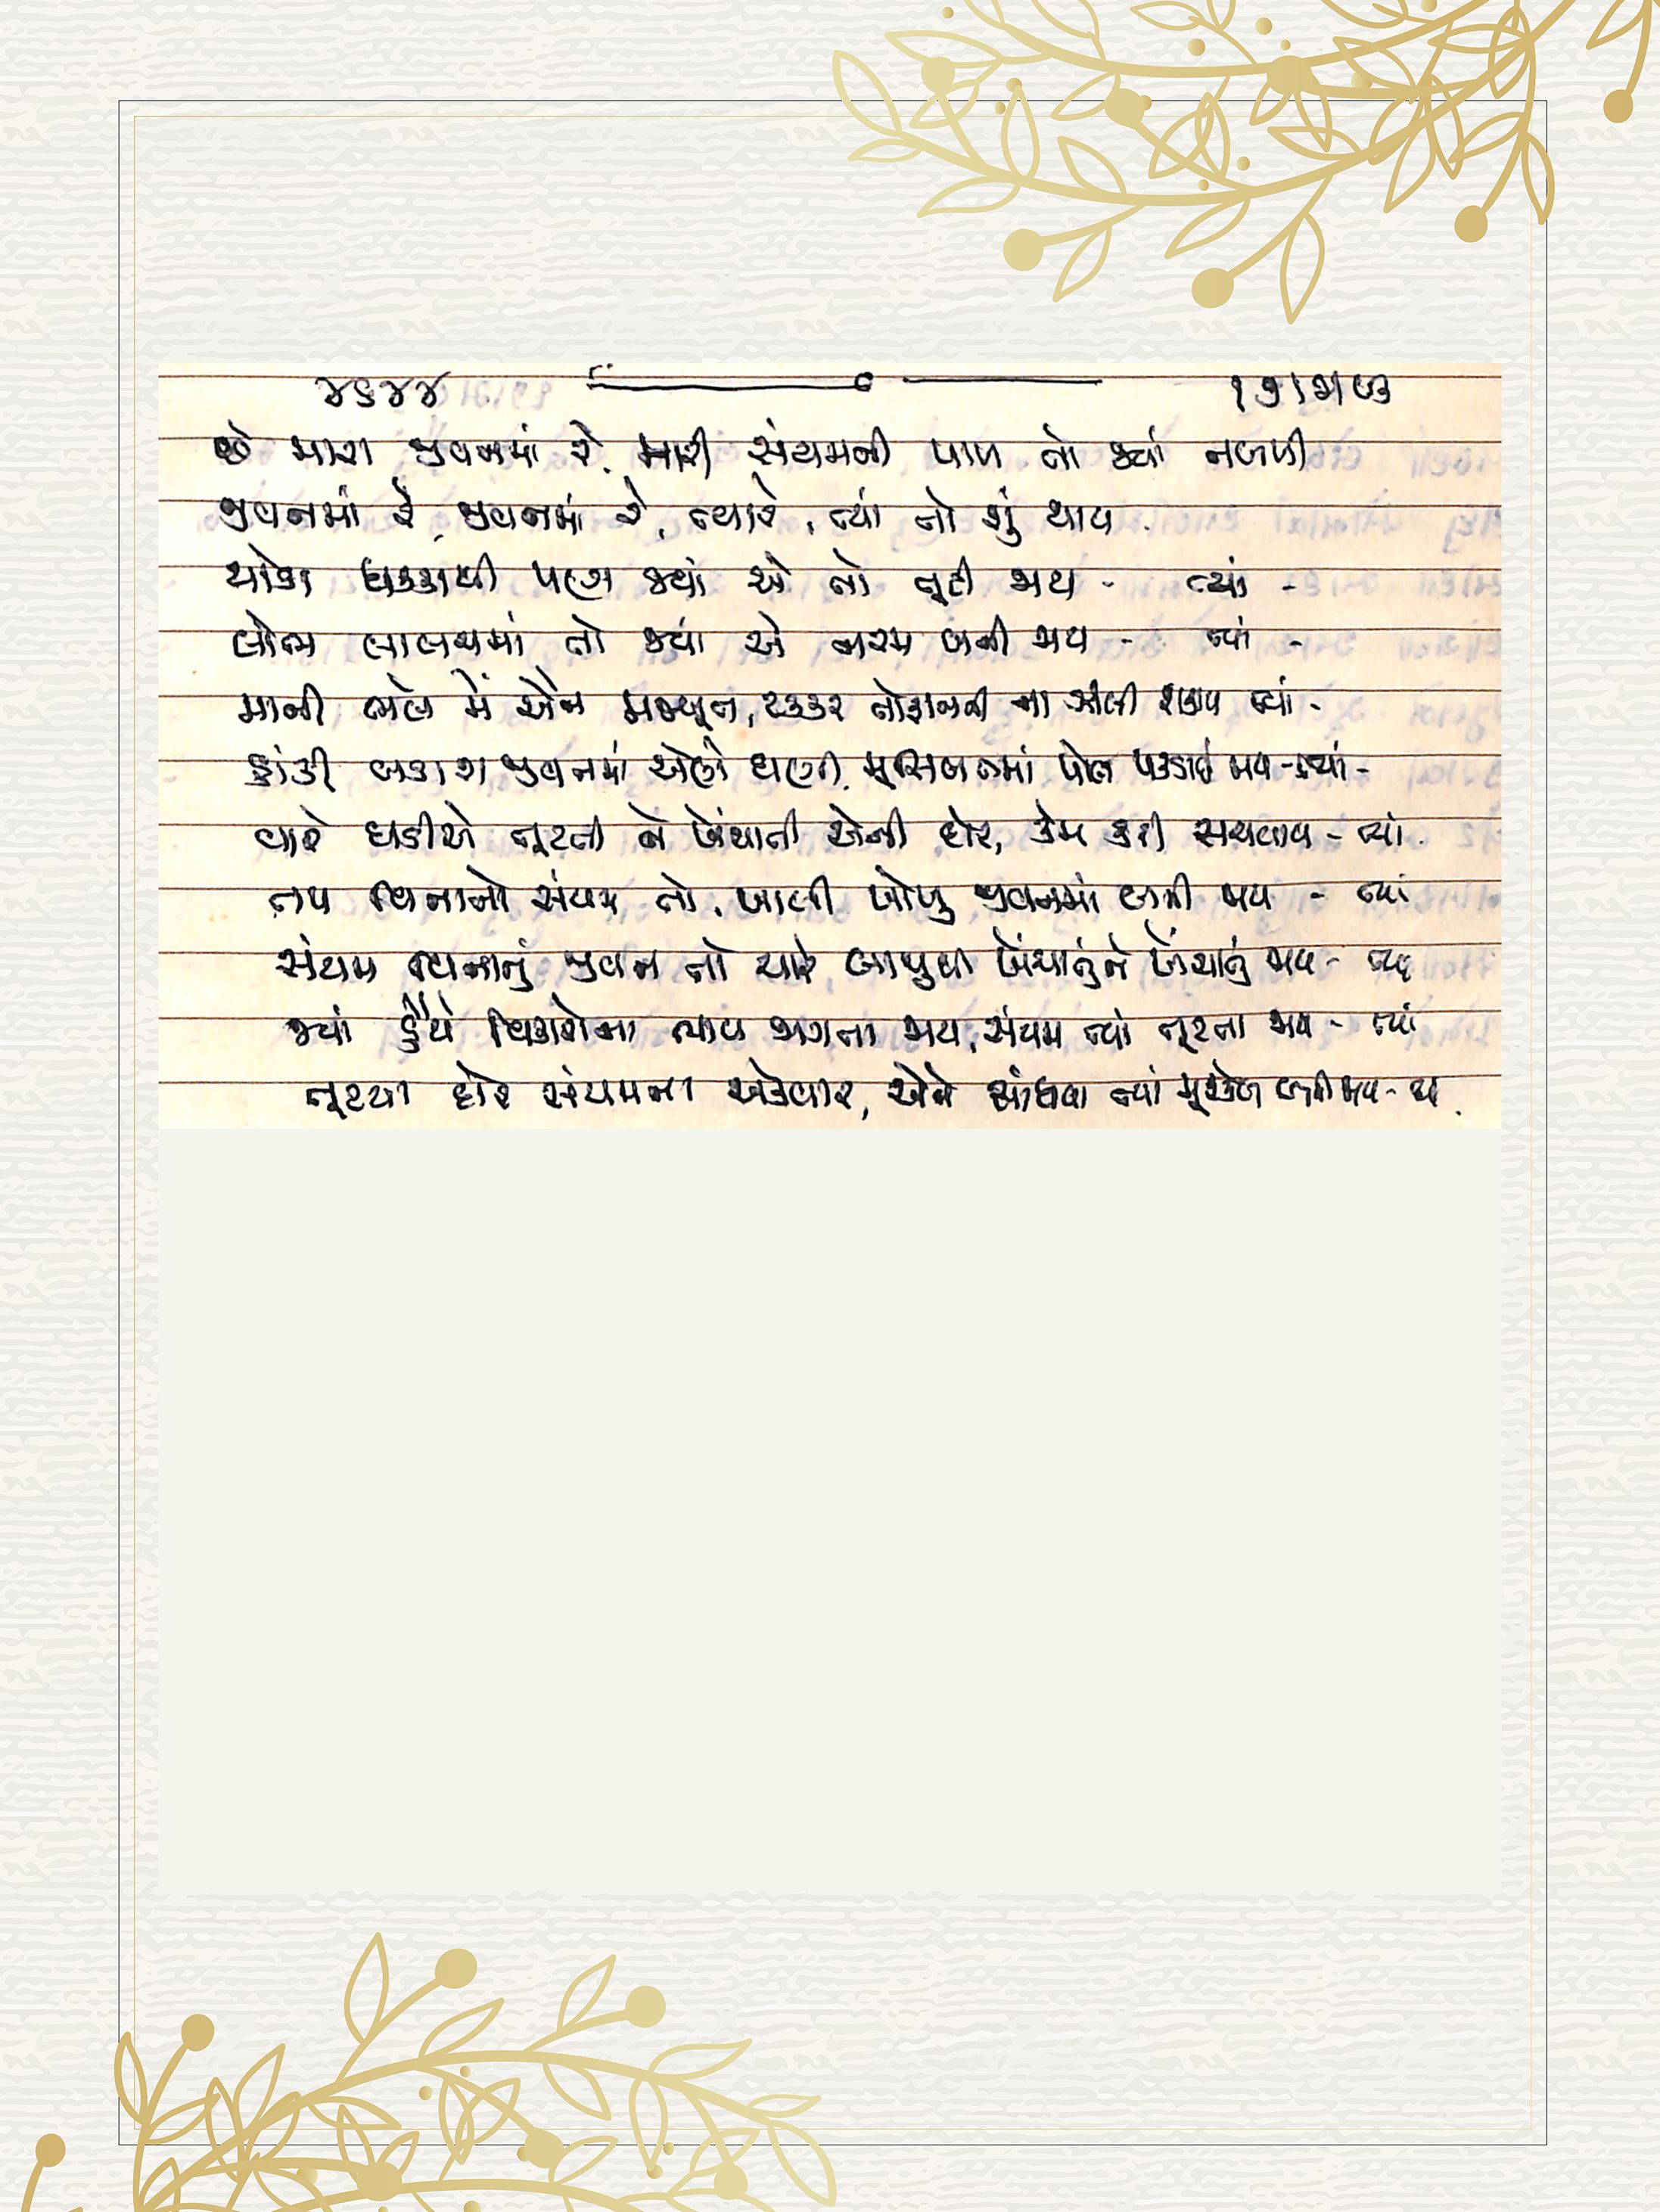 ૪૬૪૪
છે મારા જીવનમાં રે, મારી સંયમની પાળ તો જ્યાં નબળી
જીવનમાં રે, જીવનમાં રે, ત્યારે, ત્યાં તો શું થાય
થોડા ધક્કાથી પણ જ્યાં એ તો તૂટી જાય - ત્યાં -
લોભ લાલચમાં તો જ્યાં એ નરમ બની જાય - ત્યાં -
માની ભલે મેં એને મજબૂત, ટક્કર તોફાનની ના ઝીલી શકાય ત્યાં -
ફાંકી બડાશ જીવનમાં એણે ઘણી, મૂસિબતમાં પોલ પકડાઈ જાય - ત્યાં -
ઘડીએ તૂટતી ને ખેંચાતી એની દોર, કેમ કરી સચવાય - ત્યાં
તપ વિનાનો સંયમ તો, ખાલી ખોખુ જીવનમાં બની જાય - ત્યાં
સંયમ વિનાનું જીવન તો ચારે બાજુથી ખેંચાતું ને ખેંચાતું જાય - ત્યાં
જ્યાં હૈયે વિકારોના ભાવ જાગતા જાય, સંયમ ત્યાં તૂટતા જાય - ત્યાં
તૂટયા દોર સંયમના એકવાર, એને સાંધવા ત્યાં મૂશ્કેલ બની જાય - ત્યાં